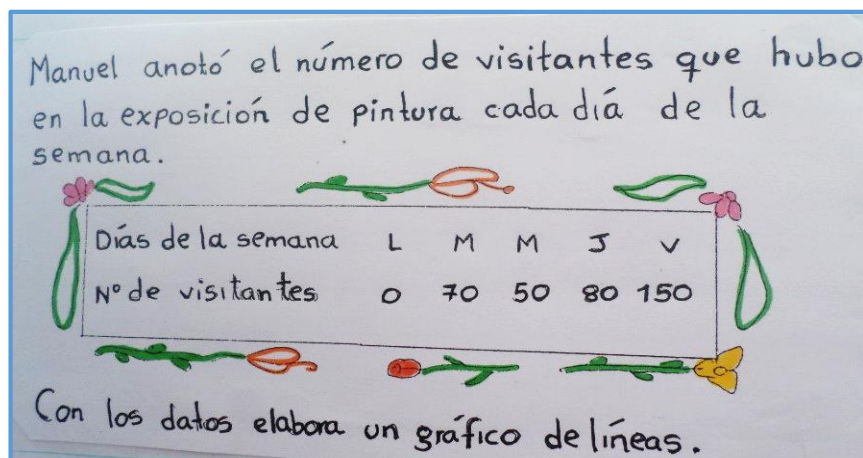 Manuel anotó el número de visitantes que hubo
en la exposición de pintura cada diá de la
semana.
Días de la semana L M M J V
Nº de visitantes 0 70 50 80 150
Con los datos elabora un gráfico de líneas.